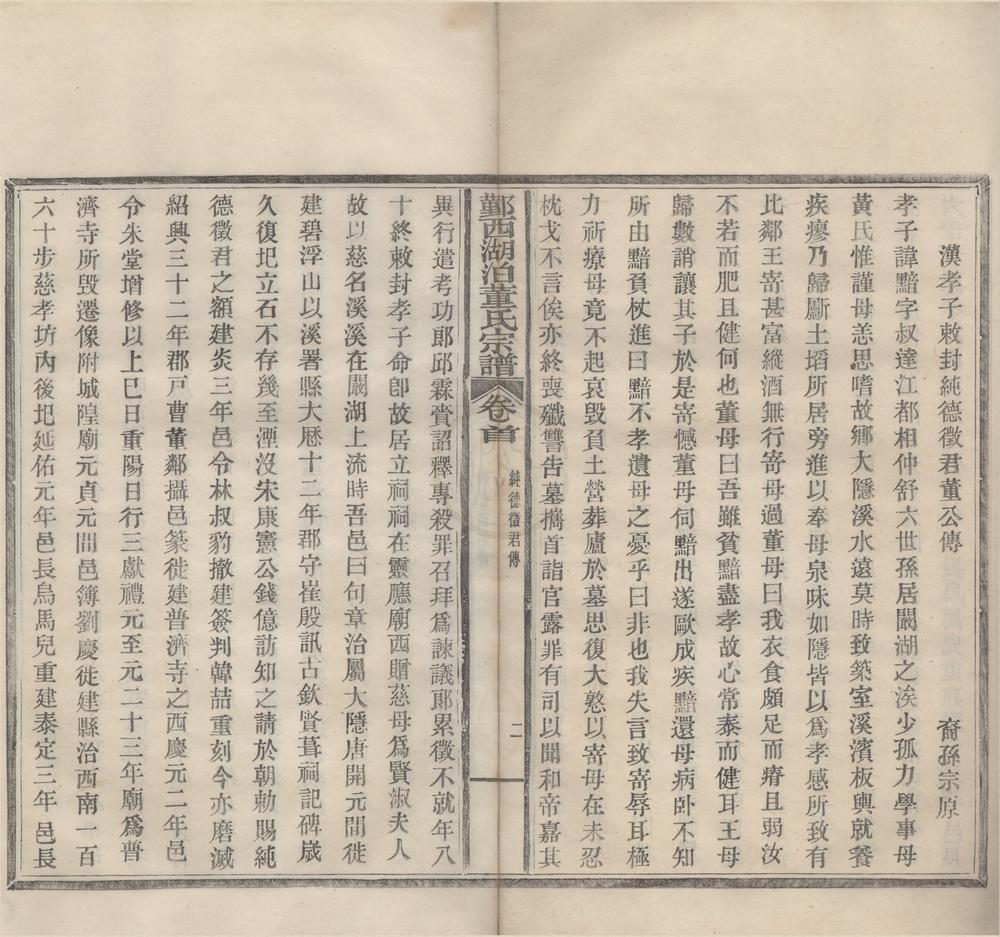 漢孝子敕封純德徵君董公傳 裔孫宗原
孝子諱黯字叔達江都相仲舒六世孫居闞湖之涘少孤力學事母
黃氏惟謹母恙思嗜故鄉大隱溪水遠莫時致築室溪濱板輿就養
疾瘳乃歸斸土塪所居旁進以奉母泉味如隱皆以為孝感所致有
比鄰王寄甚富縱酒無行寄母過董母曰我衣食頗足而瘠且弱汝
不若而肥且健何也董母曰吾雖貧黯盡孝故心常泰而健耳王母
歸數誚讓其子於是寄憾董母伺黯出遂歐成疾黯還母病卧不知
所由黯負杖進曰黯不孝遺母之憂乎曰非也我失言致寄辱耳極
力祈療母竟不起哀毀負土營葬廬於墓思復大憝以寄母在未忍
枕戈不言俟亦終喪殲讐告墓擕首詣官露罪有司以聞和帝嘉其
鄞西湖泊董氏宗譜 卷首 純德徵君傳 二
異行遣考功郎邱霖賫詔釋專殺罪召拜為諫議郎累徵不就年八
十終敕封孝子命卽故居立祠祠在靈應廟西贈慈母為賢淑夫人
故以慈名溪溪在闞湖上流時吾邑曰句章治屬大隱唐開元間徙
建碧浮山以溪署縣大厯十二年郡守崔殷訊古欽賢葺祠記碑歲
久復圯立石不存幾至湮沒宋康憲公錢億訪知之請於朝勅賜純
德徵君之額建炎三年邑令林叔豹撤建簽判韓喆重刻今亦磨滅
紹興三十二年郡戸曹董鄰攝邑篆徙建普濟寺之西慶元二年邑
令朱堂增修以上巳日重陽日行三獻禮元至元二十三年廟為普
濟寺所毀遷像附城隍廟元貞元間邑簿劉慶徙建縣治西南一百
六十步慈孝坊內後圯延佑元年邑長烏馬兒重建泰定三年邑長